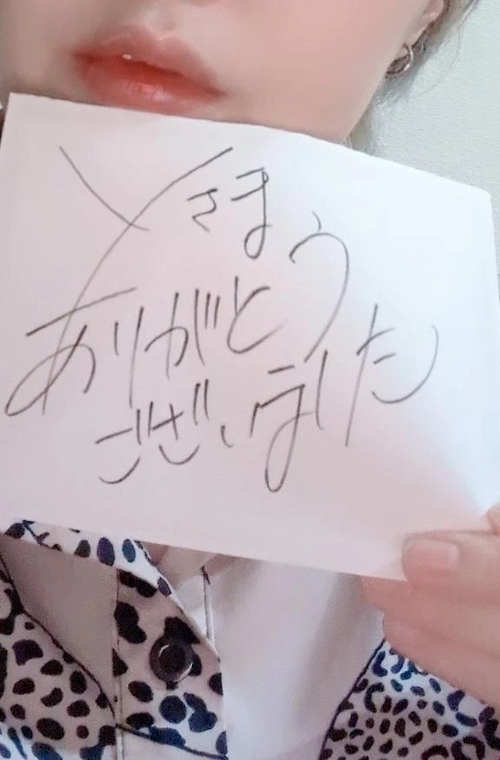 Yさま
ありがとう
ございました